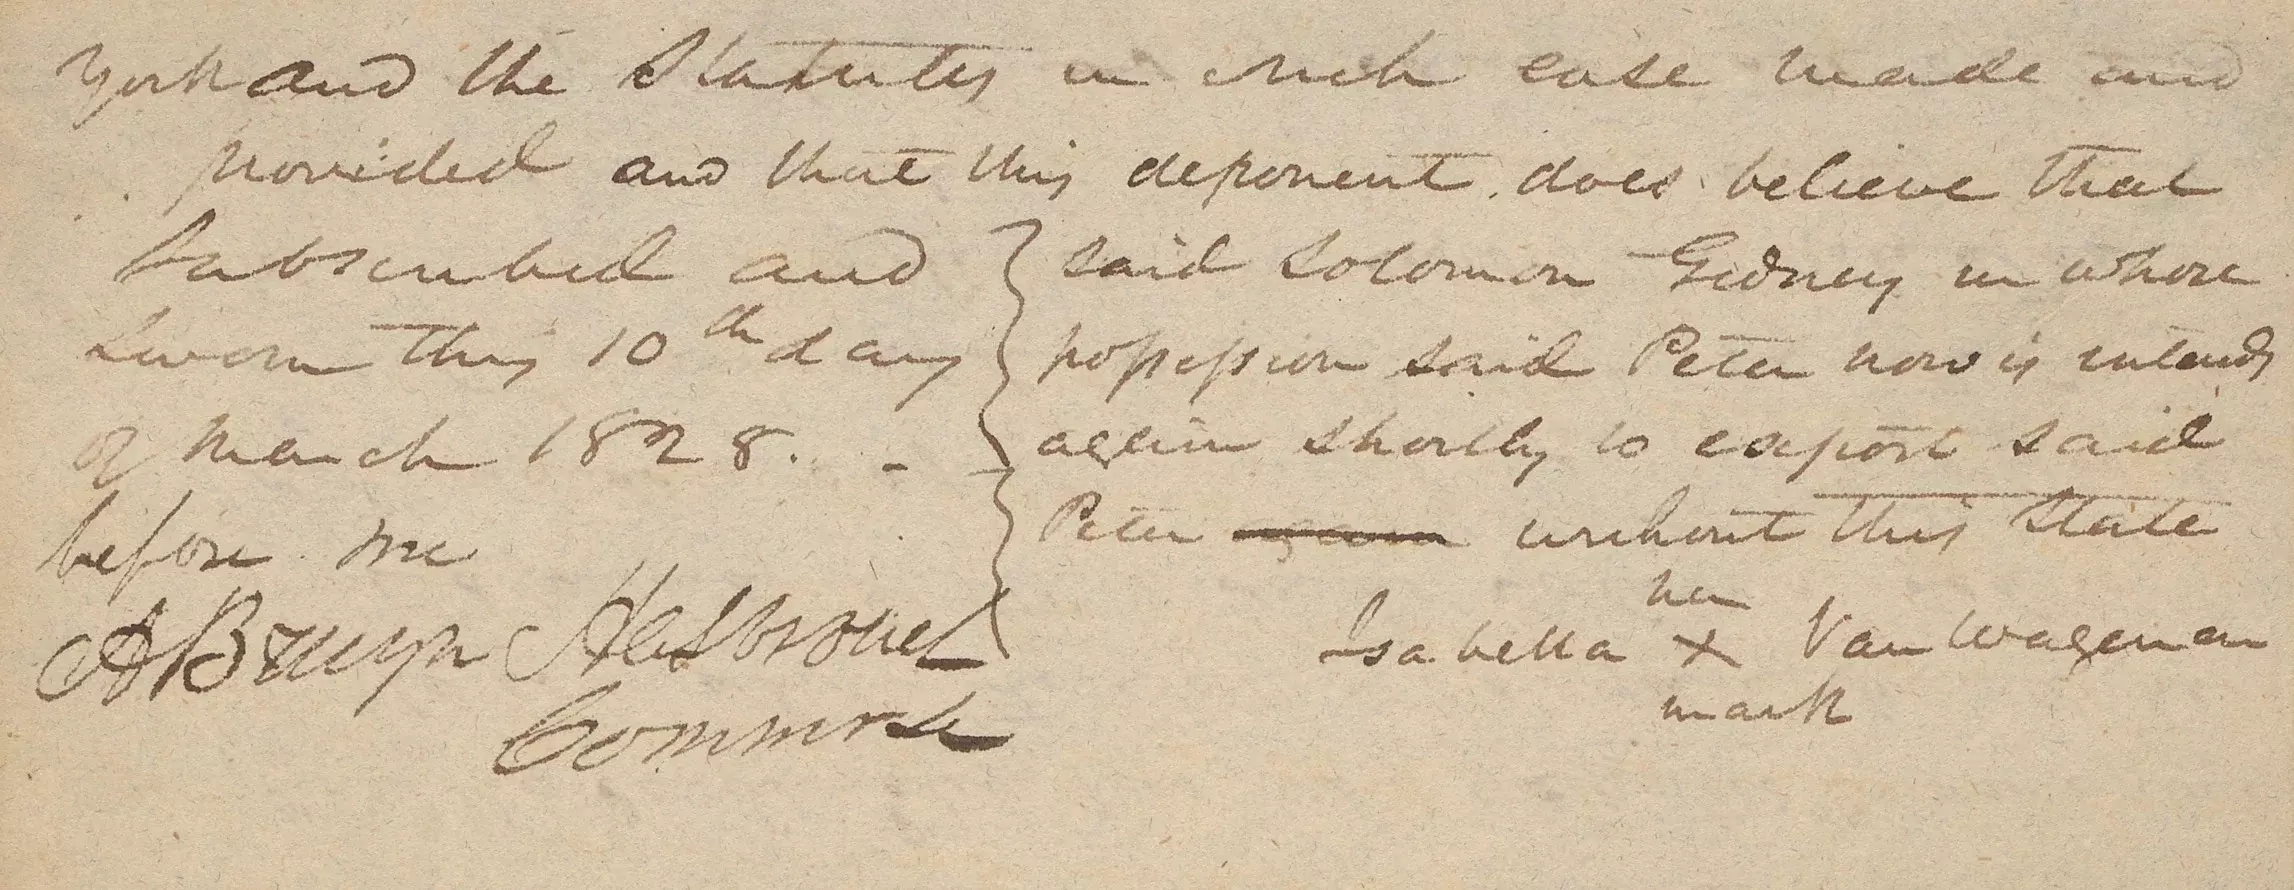 York and the Statutes in such case made and
provided and that this deponent does believe that
said Solomon Gidney in whose
possession said Peter now is intends
again shortly to export said
Peter again without this State
Subscribed and
Sworn this 10th day
of March 1828. -
before me
A Bruyn Hasbrouck
Commr
her
Isabella X Van Wagenen
mark